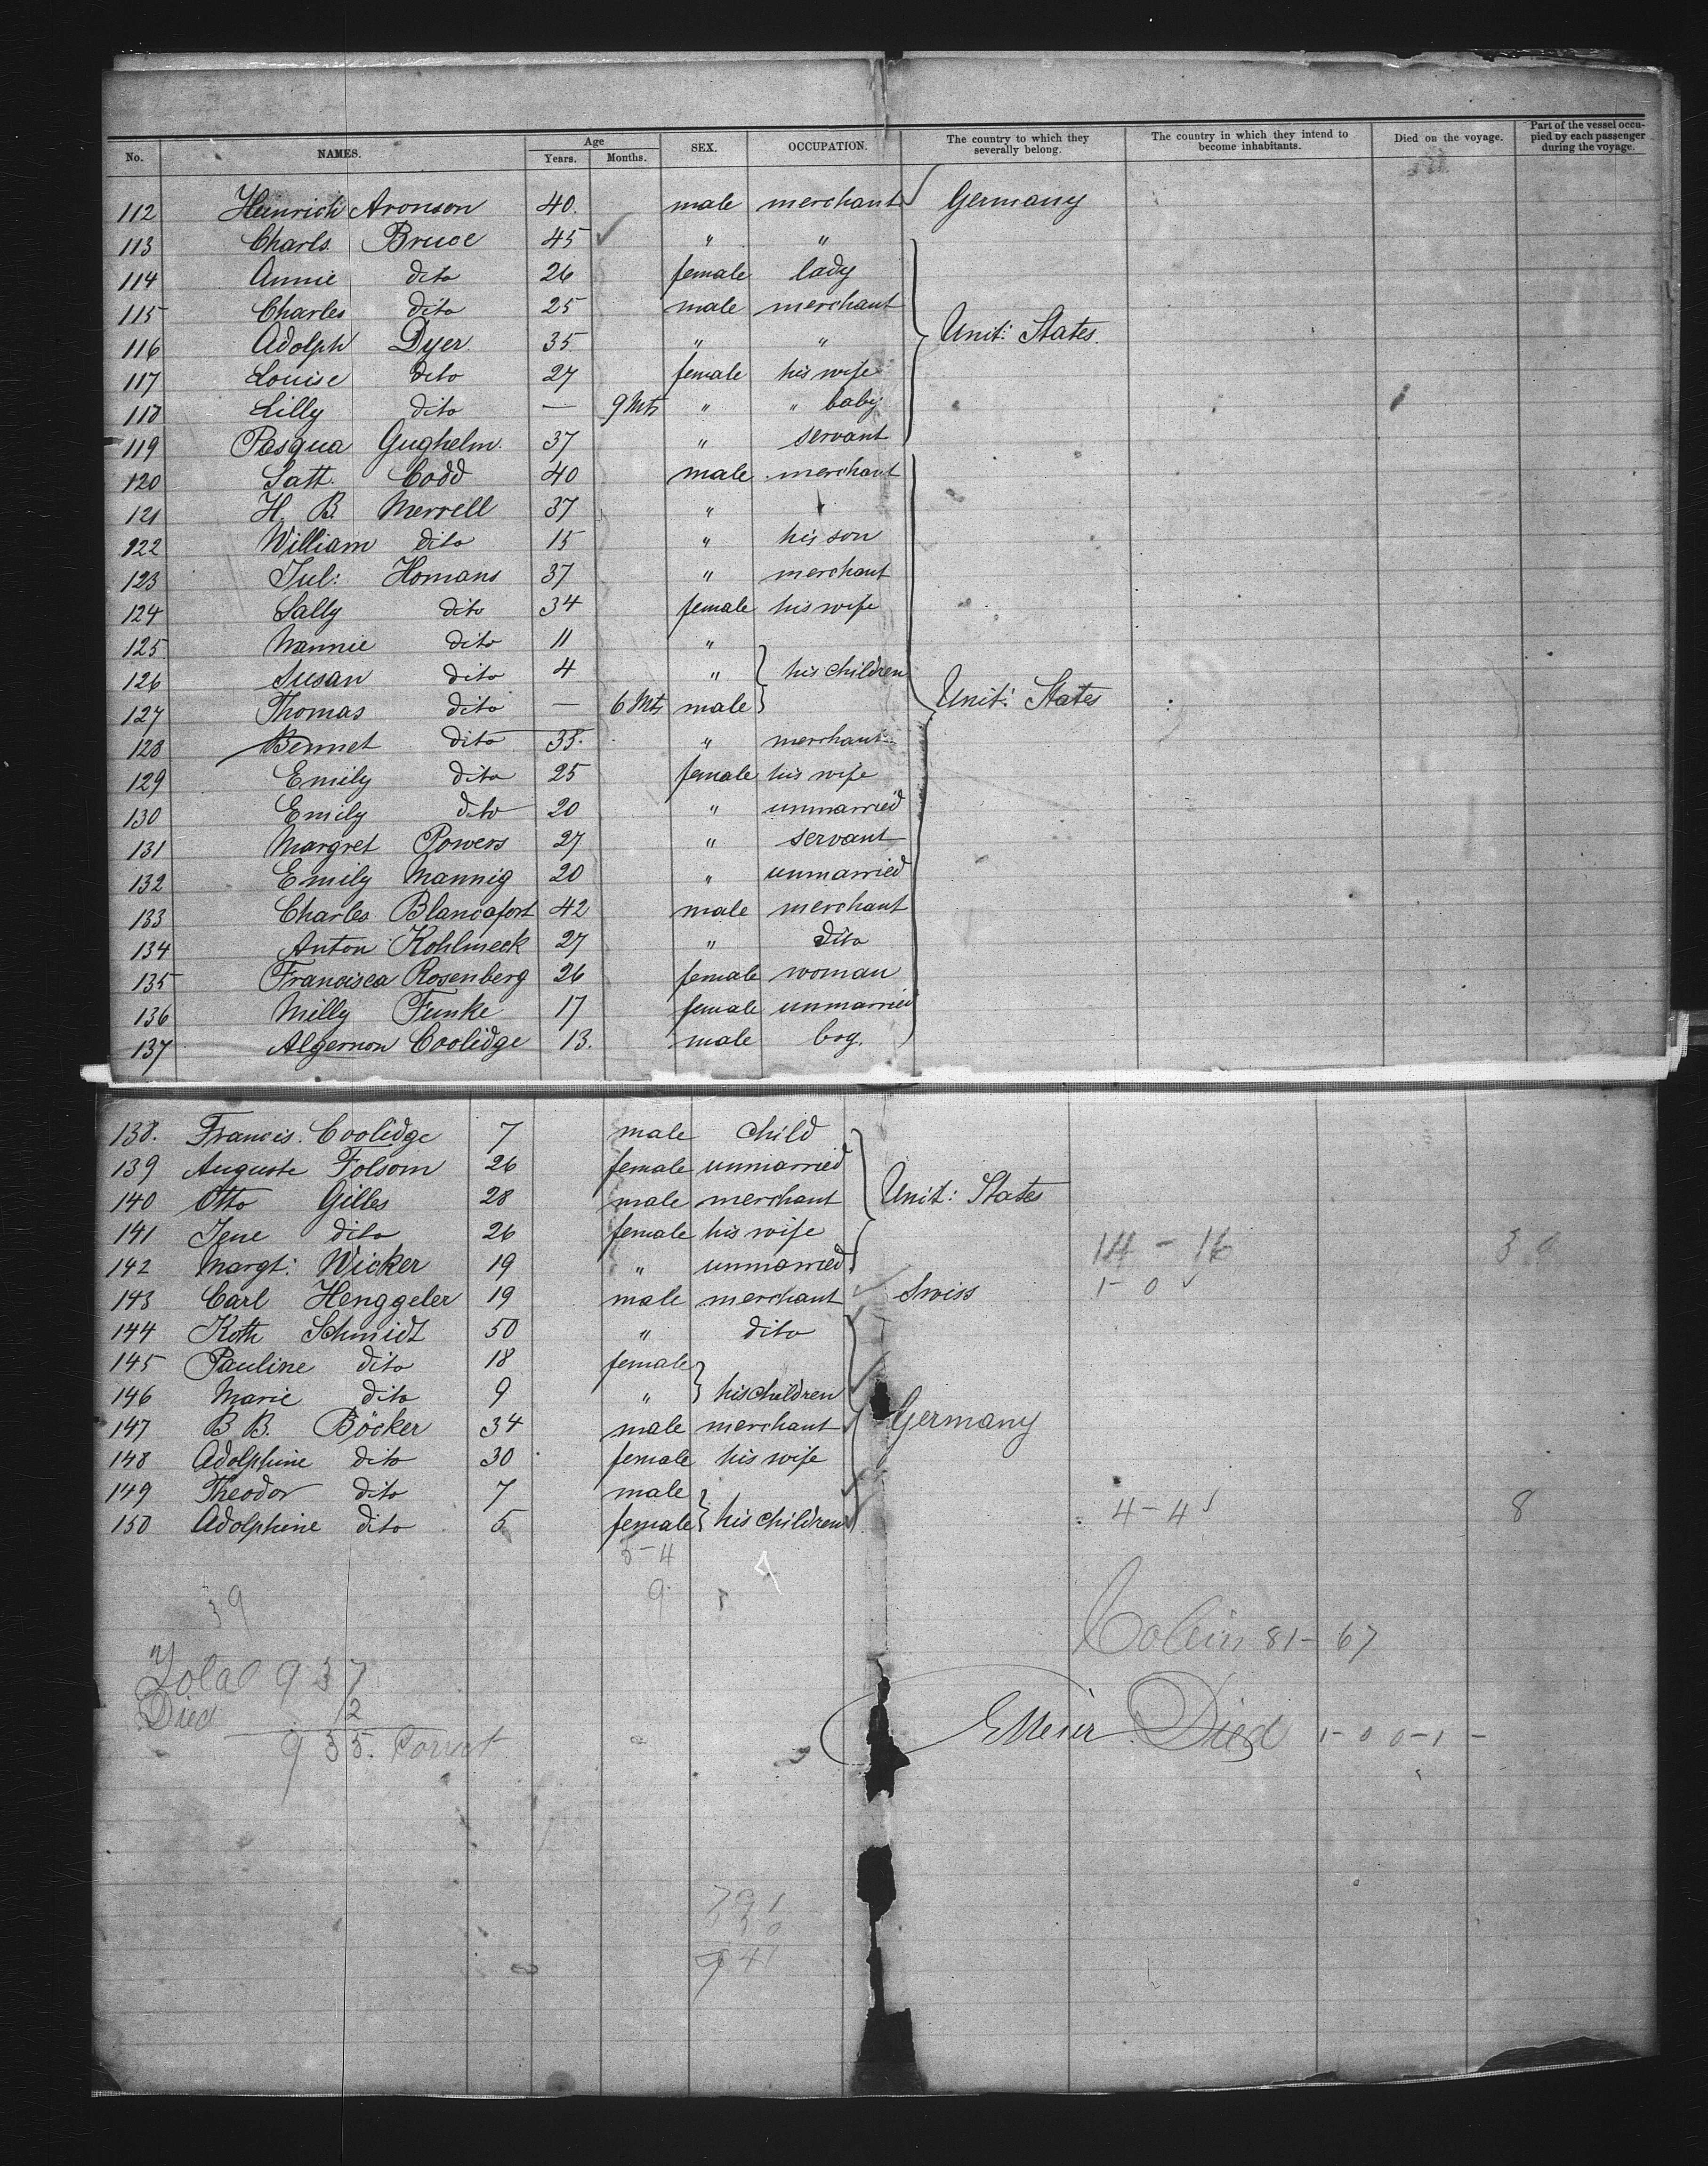 No. NAMES. Age Years. Months. SEX. OCCUPATION. The country to which they severally belong. The country in which they intend to become inhabitants. Died on the voyage. Part of the vessel occupied by each passenger during the voyage.
112 Heinrich Aronson 40. male merchant Germany
113 Charls. Bruce 45 " "
114 Annie dito 26 female lady
115 Charles dito 25 male merchant
116 Adolph Dyer 35 " " Unit: States.
117 Louise dito 27 female his wife
118 Lilly dito — 9 Mts " " baby
119 Pasqua Gughelm. 37 " servant
120 Satt. Codd 40 male merchant
121 H. B. Merrell 37 "
122 William dito 15 " his son
123 Jul: Homans 37 " merchant
124 Sally dito 34 female his wife
125 Nannie dito 11 "
126 Susan dito 4 " his children
127 Thomas dito — 6 Mts male Unit: States
128 Bennet dito 35. " merchant
129 Emily dito 25 female his wife
130 Emily dito 20 " unmarried
131 Margret Powers 27 " servant
132 Emily Mannig 20 " unmarried
133 Charles Blancafort 42 male merchant
134 Anton Kohlmeck 27 " dito
135 Francisca Rosenberg 26 female woman
136 Milly Funke 17 female unmarried
137 Algernon Coolidge 13. male boy.
138. Francis. Coolidge 7 male child
139 Auguste Folsom 26 female unmarried
140 Otto Gilles 28 male merchant Unit: States
141 Jene dito 26 female his wife
142 Margt: Wicker 19 " unmarried 14 - 16
143 Carl Henggeler 19 male merchant Swiss 1 - 0
144 Koth Schmidt 50 " dito
145 Pauline dito 18 female
146 Marie dito 9 " his children
147 B. B. Böcker 34 male merchant Germany
148 Adolphine dito 30 female his wife
149 Theodor dito 7 male
150 Adolphine dito 5 female his children 4 - 4 8
5 - 4
9
39
81 - 67
Total 937
Died 2
935. Correct
Died 1 - 0 0 - 1 -
791
941